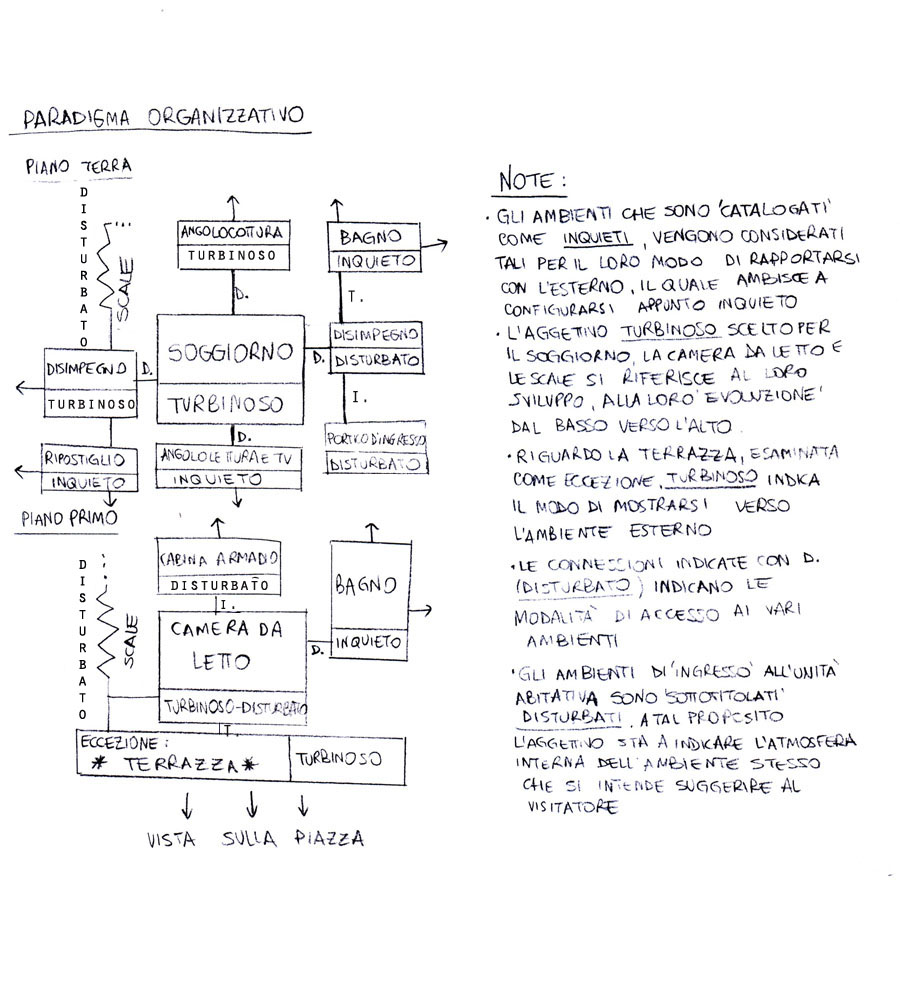 PARADIGMA ORGANIZZATIVO
PIANO TERRA
DISTURBATO
SCALE
ANGOLOCOTTURA
TURBINOSO
BAGNO
INQUIETO
D.
T.
SOGGIORNO
TURBINOSO
D.
DISIMPEGNO
DISTURBATO
DISIMPEGNO
TURBINOSO
D.
I.
D.
PORTICO D'INGRESSO
DISTURBATO
RIPOSTIGLIO
INQUIETO
ANGOLO LETTURA E TV
INQUIETO
PIANO PRIMO
DISTURBATO
SCALE
CABINA ARMADIO
DISTURBATO
I.
BAGNO
INQUIETO
CAMERA DA
LETTO
TURBINOSO-DISTURBATO
D.
T.
ECCEZIONE:
* TERRAZZA *
TURBINOSO
VISTA SULLA PIAZZA
NOTE:
· GLI AMBIENTI CHE SONO 'CATALOGATI'
COME INQUIETI, VENGONO CONSIDERATI
TALI PER IL LORO MODO DI RAPPORTARSI
CON L'ESTERNO, IL QUALE AMBISCE A
CONFIGURARSI APPUNTO INQUIETO
· L'AGGETINO TURBINOSO SCELTO PER
IL SOGGIORNO, LA CAMERA DA LETTO E
LE SCALE SI RIFERISCE AL LORO
SVILUPPO, ALLA LORO 'EVOLUZIONE'
DAL BASSO VERSO L'ALTO.
· RIGUARDO LA TERRAZZA, ESAMINATA
COME ECCEZIONE, TURBINOSO INDICA
IL MODO DI MOSTRARSI VERSO
L'AMBIENTE ESTERNO
· LE CONNESSIONI INDICATE CON D.
(DISTURBATO) INDICANO LE
MODALITÀ DI ACCESSO AI VARI
AMBIENTI
· GLI AMBIENTI DI 'INGRESSO' ALL'UNITÀ
ABITATIVA SONO 'SOTTOTITOLATI'
DISTURBATI. A TAL PROPOSITO
L'AGGETINO STA A INDICARE L'ATMOSFERA
INTERNA DELL'AMBIENTE STESSO
CHE SI INTENDE SUGGERIRE AL
VISITATORE